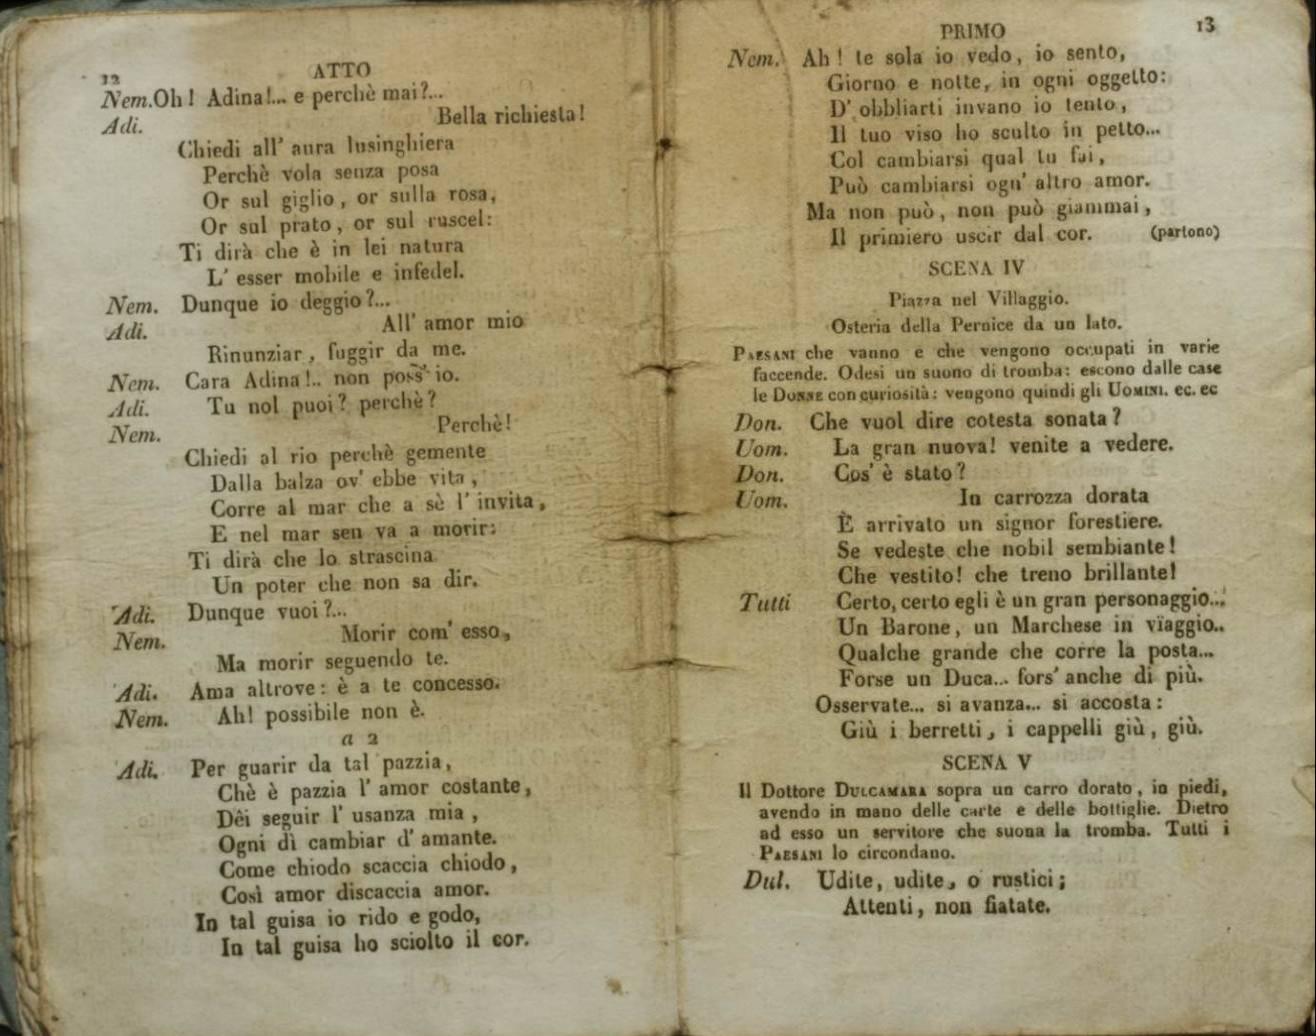 12
ATTO
Nem. Oh! Adina!... e perchè mai?...
Adi. Bella richiesta!
Chiedi all' aura lusinghiera
Perchè vola senza posa
Or sul giglio, or sulla rosa,
Or sul prato, or sul ruscel:
Ti dirà che è in lei natura
L' esser mobile e infedel.
Nem. Dunque io deggio?...
Adi. All' amor mio
Rinunziar, fuggir da me.
Nem. Cara Adina!.. non poss' io.
Adi. Tu nol puoi? perchè?
Nem. Perchè!
Chiedi al rio perchè gemente
Dalla balza ov' ebbe vita,
Corre al mar che a sè l' invita,
E nel mar sen va a morir:
Ti dirà che lo strascina
Un poter che non sa dir.
Adi. Dunque vuoi?...
Nem. Morir com' esso,
Ma morir seguendo te.
Adi. Ama altrove: è a te concesso.
Nem. Ah! possibile non è.
a 2
Adi. Per guarir da tal pazzia,
Chè è pazzia l' amor costante,
Dêi seguir l' usanza mia,
Ogni dì cambiar d' amante.
Come chiodo scaccia chiodo,
Così amor discaccia amor.
In tal guisa io rido e godo,
In tal guisa ho sciolto il cor.
PRIMO
13
Nem. Ah! te sola io vedo, io sento,
Giorno e notte, in ogni oggetto:
D' obbliarti invano io tento,
Il tuo viso ho sculto in petto...
Col cambiarsi qual tu fai,
Può cambiarsi ogn' altro amor.
Ma non può, non può giammai,
Il primiero uscir dal cor. (partono)
SCENA IV
Piazza nel Villaggio.
Osteria della Pernice da un lato.
PAESANI che vanno e che vengono occupati in varie
faccende. Odesi un suono di tromba: escono dalle case
le DONNE con curiosità: vengono quindi gli UOMINI. ec. ec
Don. Che vuol dire cotesta sonata?
Uom. La gran nuova! venite a vedere.
Don. Cos' è stato?
Uom. In carrozza dorata
È arrivato un signor forestiere.
Se vedeste che nobil sembiante!
Che vestito! che treno brillante!
Tutti Certo, certo egli è un gran personaggio...
Un Barone, un Marchese in viaggio..
Qualche grande che corre la posta...
Forse un Duca... fors' anche di più.
Osservate... si avanza... si accosta:
Giù i berretti, i cappelli giù, giù.
SCENA V
Il Dottore DULCAMARA sopra un carro dorato, in piedi,
avendo in mano delle carte e delle bottiglie. Dietro
ad esso un servitore che suona la tromba. Tutti i
PAESANI lo circondano.
Dul. Udite, udite, o rustici;
Attenti, non fiatate.